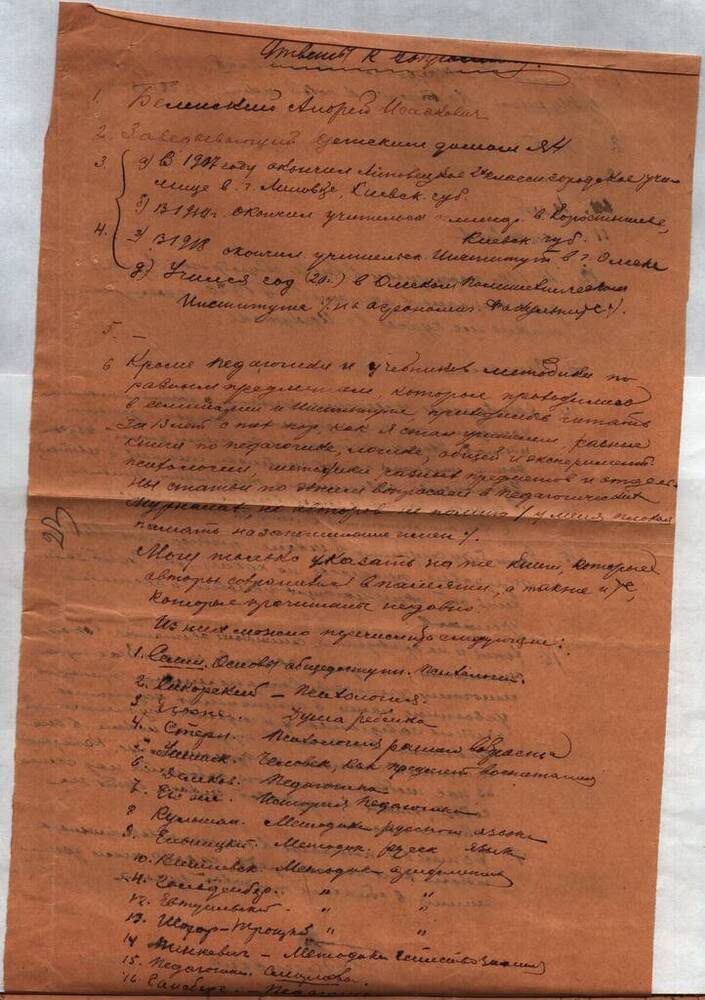 Ответы к вопросам.
1. Беленский Андрей Исаакович
2. Заведывающий детским домом №4
3. а) В 1907 году окончил Липовецкое 2х класс. городское учи-
лище в г. Липовце, Киевск. губ.
б) В 1911 г. окончил учительск. семинар. в Коростышеве,
Киевск. губ.
4. в) В 1918 окончил учительск. Институт в г. Омске
д) Учился год (20 г.) в Омском
Институте /на агрономич. факультете/.
5. –
6 Кроме педагогики и учебников методики по
разным предметам, которые проходились
в семинарии и Институте, приходилось читать
за лет с тех пор как я стал учителем, разные
книги по педагогике, логике, общей и эксперимент.
психологии, методики разных предметов и отдель-
ные статьи по этим вопросам в педагогических
журналах, но авторов не помню / у меня плохая
память на запоминание имен /.
23
Могу только указать на те книги, которые
авторы сохранились в памяти, а также и те,
которые прочитаны недавно.
Из них можно перечислить следующие:
1. Основы общедоступн. психологии.
2. Сикорский – Психология.
3. Душа ребенка
4. Стерн. Психология раннего возраста
5. Ушинск. Человек, как предмет воспитания
6. Педагогика
7. Его же. История педагогики
8 Кульман. Методика русского языка
9. Ельницкий. Методик. русск. язык
10. Методика арифметики
11. Гольденбер. " "
12. Евтушевский. " "
13. Шохор-Троцкий " "
14 – Методика естествознания
15. Педагогика.
16.